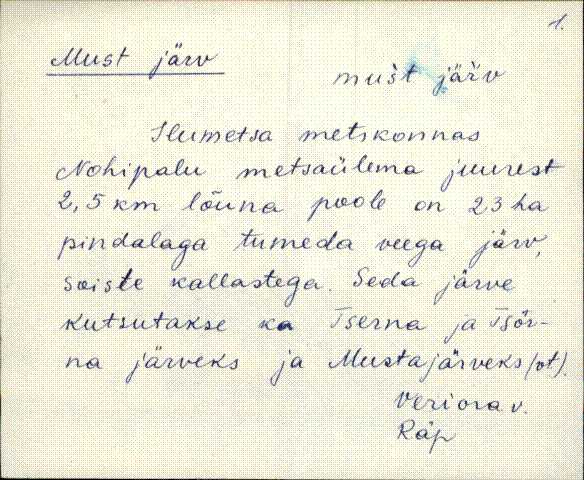 1.
Must järv
mus̀t järv
Ilumetsa metskonnas
Nohipalu metsaülema juurest
2,5 km lõuna poole on 23 ha
pindalaga tumeda veega järv,
soiste kallastega. Seda järve
kutsutakse ka Tserna ja Tsõr-
na järveks ja Mustajärveks (vt).
Veriora v.
Räp